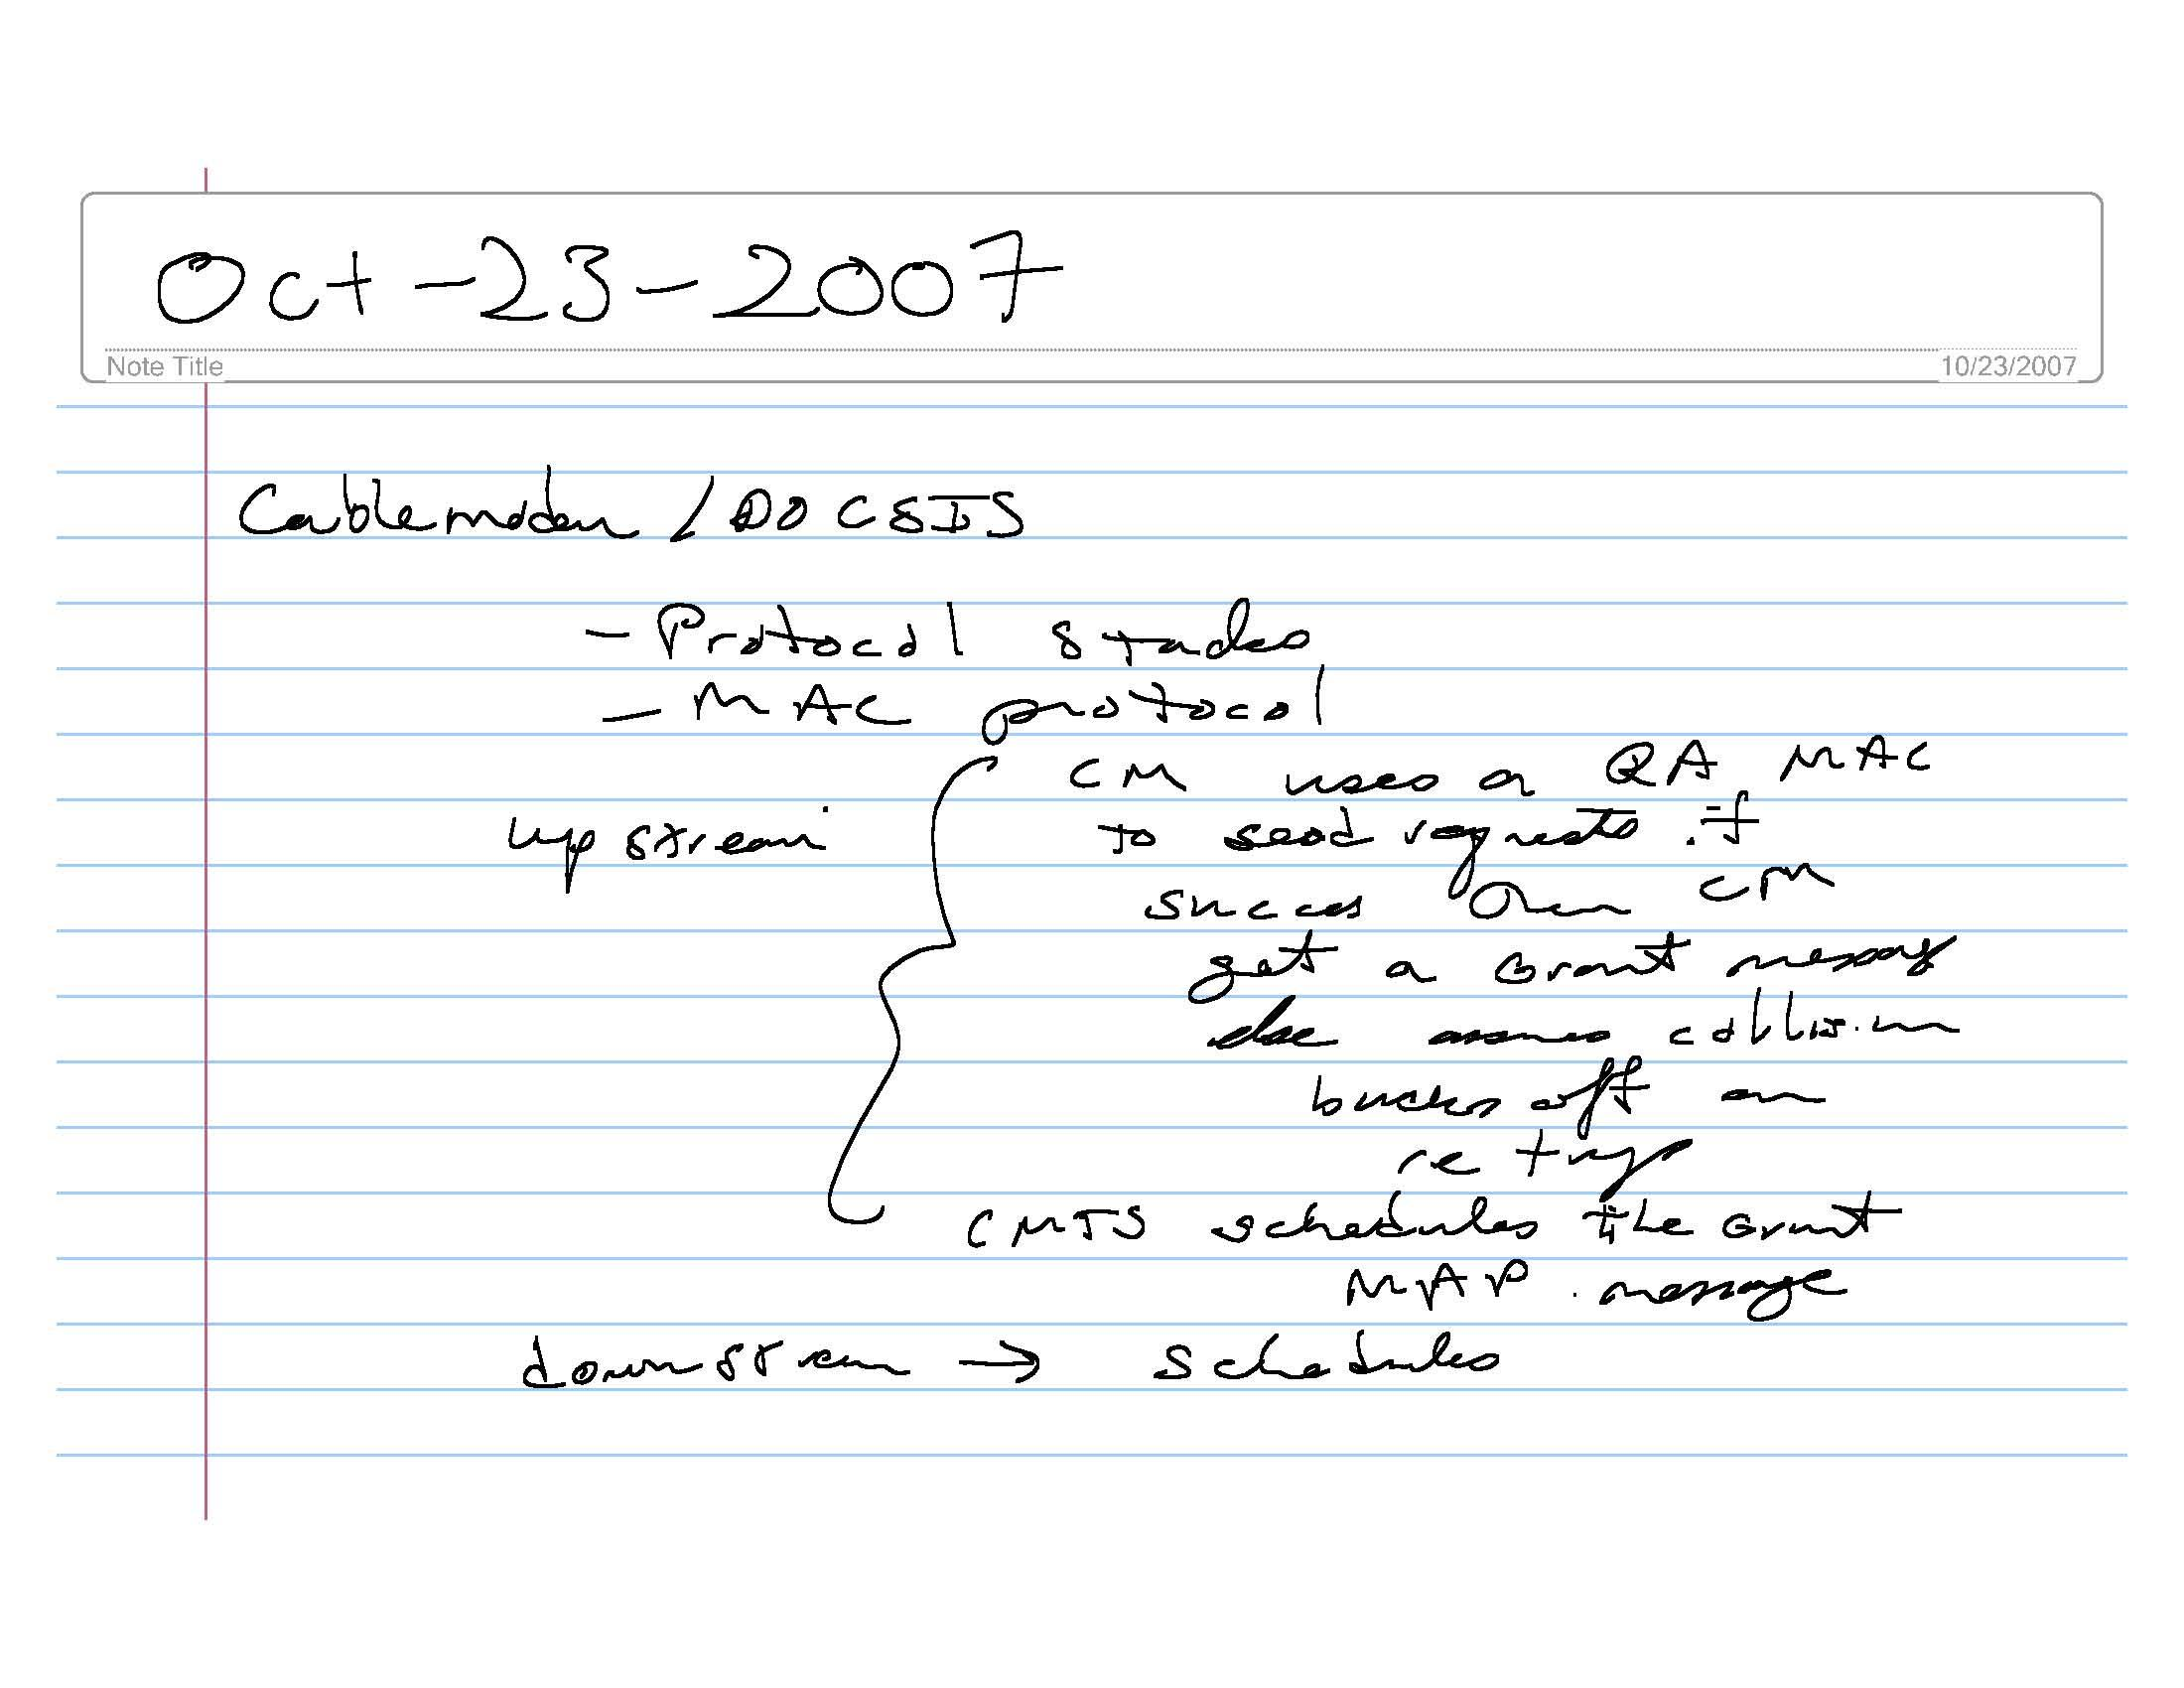 Oct-23-2007
Note Title
10/23/2007
Cablemodem / DOCSIS
- Protocol stacks
- MAC protocol
upstream
CM uses a RA MAC
to send requests if
success then CM
get a Grant message
else assumes collision
backs off an
retrys
CMTS schedules the Grant
MAP message
downstream → schedules